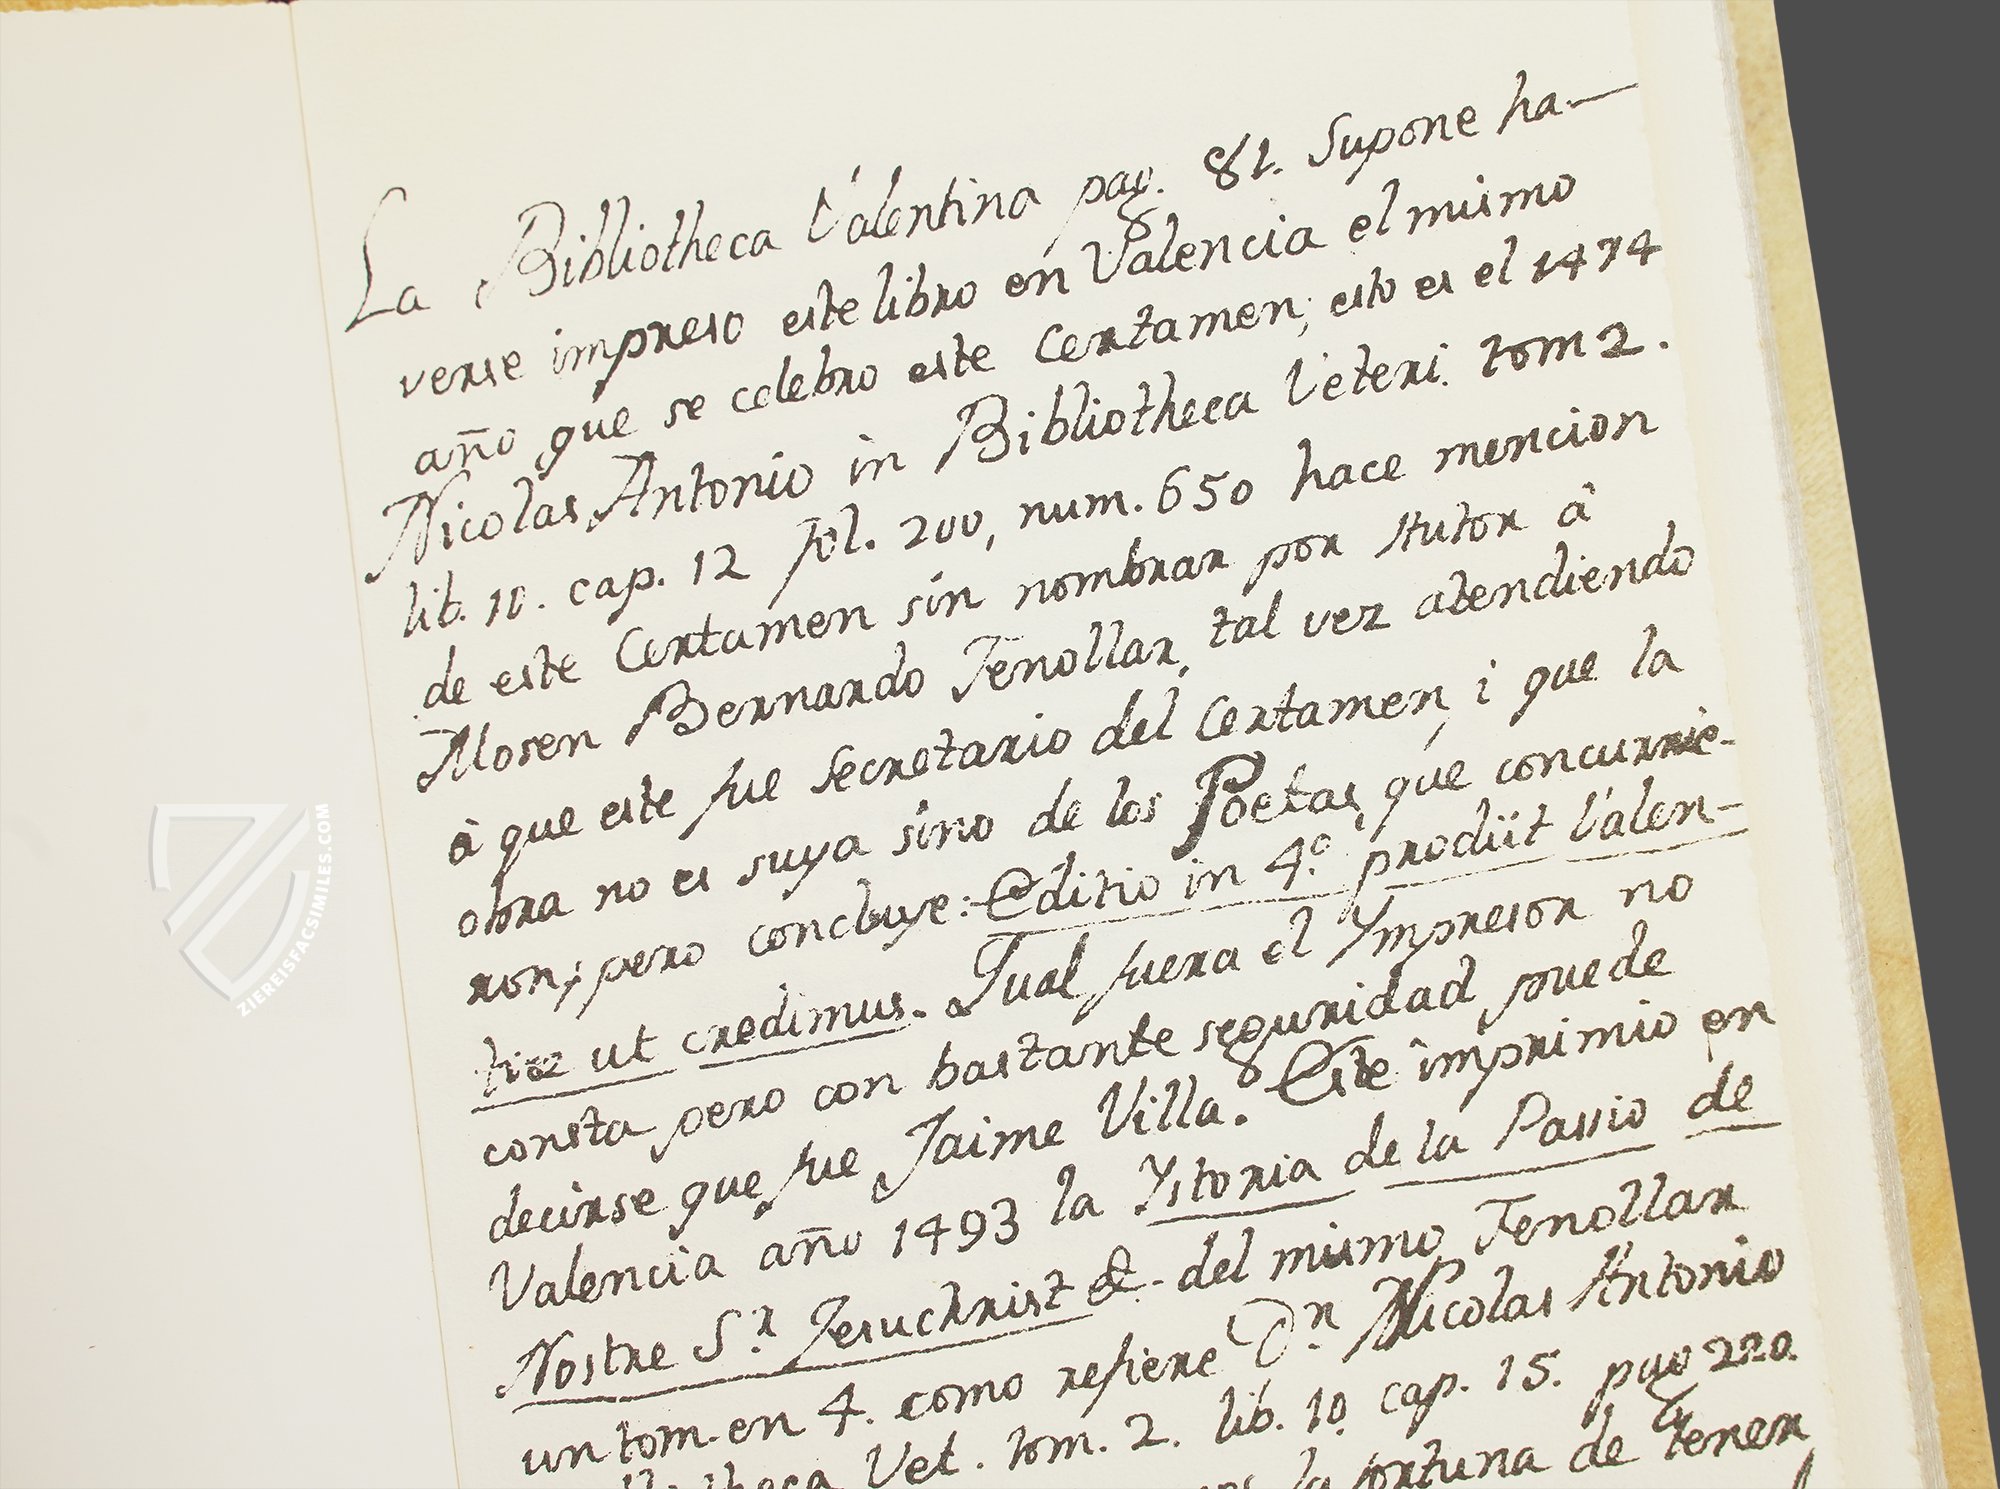 La Bibliotheca Valentina pag. 81. Supone ha-
verse impreso este libro en Valencia el mismo
año que se celebro este Certamen; esto es el 1474
Nicolas Antonio in Bibliotheca Veteri. tom 2.
lib. 10. cap. 12 fol. 200, num. 650 hace mencion
de este Certamen sin nombrar por Autor à
Mosen Bernardo Fenollar, tal vez atendiendo
à que este fue Secretario del Certamen, i que la
obra no es suya sino de los Poetas, que concurrie-
ron; pero concluye: Editio in 4.º prodiit Valen-
tiæ ut credimus. Qual fuera el Ympresor no
consta pero con bastante seguridad puede
decirse que fue Jaime Villa. Este imprimio en
Valencia año 1493 la Ystoria de la Passio de
Nostre S.r Jesuchrist &. del mismo Fenollar
un tom. en 4. como refiere D.n Nicolas Antonio
Vet. tom. 2. lib. 10. cap. 15. pag 220.
la fortuna de tener
ZIEREISFACSIMILES.COM